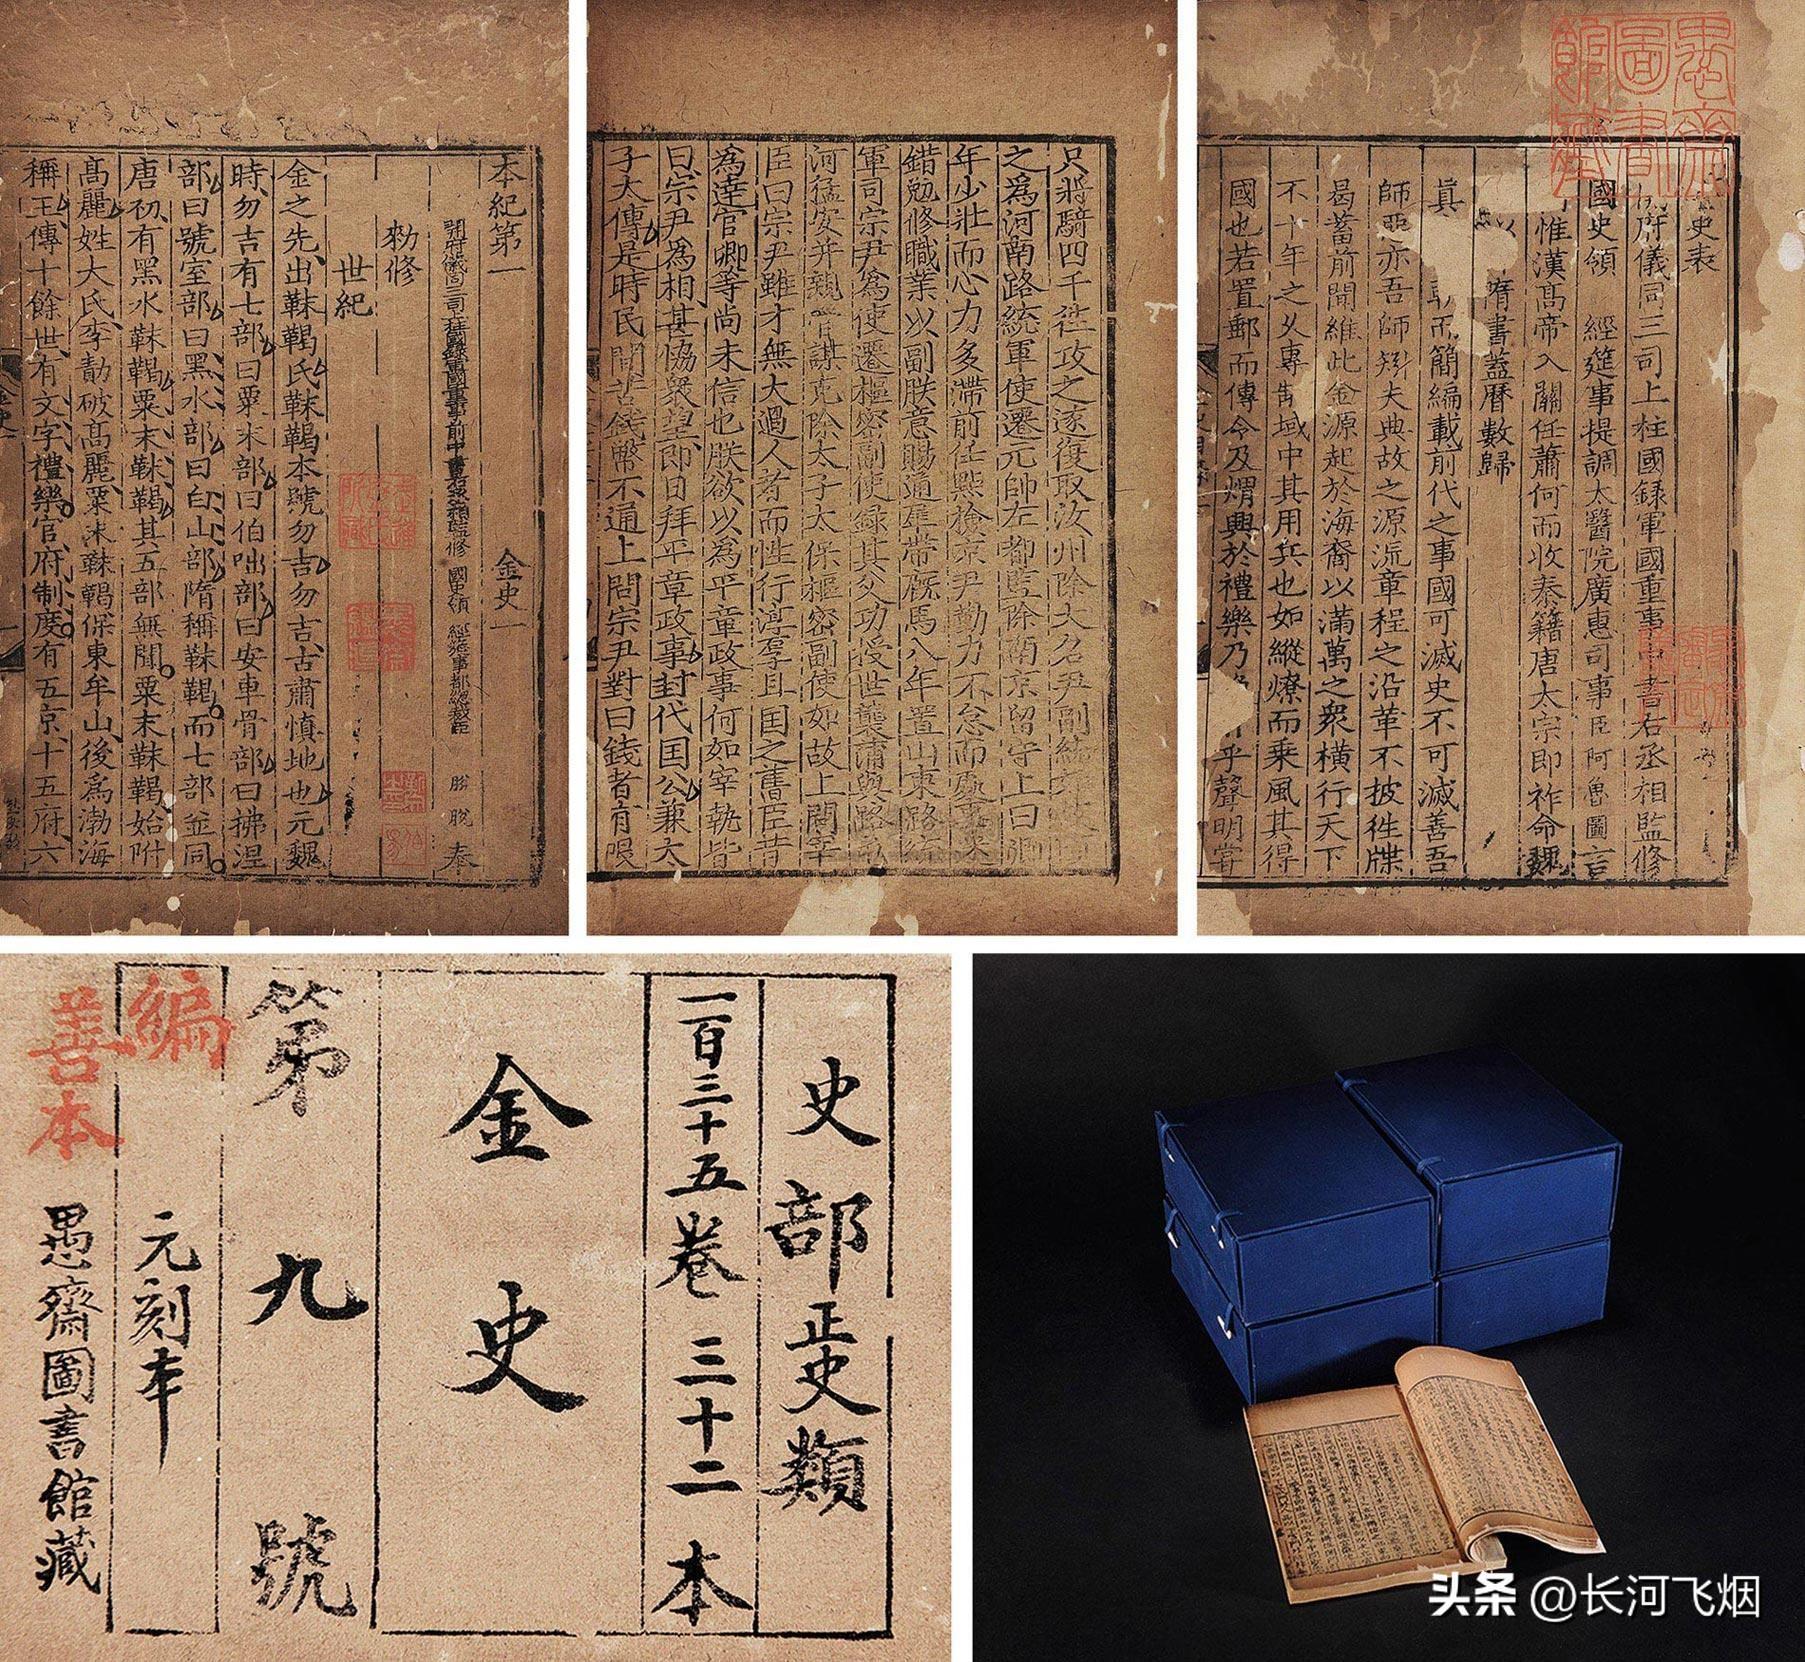 本紀第一 金史一
開府儀同三司上柱國錄軍國重事前中書右丞相監修 國史領 經筵事都總裁臣 脫脫 奉
勑修
世紀
金之先出靺鞨氏靺鞨本號勿吉勿吉古肅慎地也元魏
時勿吉有七部曰粟末部曰伯咄部曰安車骨部曰拂涅
部曰號室部曰黑水部曰白山部隋稱靺鞨而七部並同
唐初有黑水靺鞨粟末靺鞨其五部無聞粟末靺鞨始附
髙麗姓大氏李勣破髙麗粟末靺鞨保東牟山後爲渤海
稱王傳十餘世有文字禮樂官府制度有五京十五府六
只將騎四千往攻之遂復取汝州除大名尹副統
之爲河南路統軍使遷元帥左都監除南京留守上曰卿
年少壯而心力多滯前任點檢京尹勤力不怠而處事迷
錯勉修職業以副朕意賜通犀帶厩馬八年置山東路統
軍司宗尹爲使遷樞密副使録其父功授世襲蒲與路屯
河猛安并親管謀克除太子太保樞密副使如故上問宰
臣曰宗尹雖才無大過人者而性行淳厚且国之舊臣昔
為達官卿等尚未信也朕欲以為平章政事何如宰執皆
曰宗尹為相甚協衆望即日拜平章政事封代国公兼太
子太傅是時民間苦錢幣不通上問宗尹對曰錢者有限
史表
府儀同三司上柱國録軍國重事中書右丞相監修
國史領 經筵事提調太醫院廣惠司事臣阿魯圖言
惟漢髙帝入關任蕭何而收秦籍唐太宗即祚命魏
隋書蓋曆數歸
真 而簡編載前代之事國可滅史不可滅善吾
師惡亦吾師矧夫典故之源流章程之沿革不披徃牒
曷蓄前聞維此金源起於海裔以滿萬之衆橫行天下
不十年之久專制域中其用兵也如縱燎而乗風其得
國也若置郵而傳令及煟興於禮樂乃 乎聲明嘗
愚齋圖書館藏
史部正史類
一百三十五卷 三十二本
金史
第九號
編 元刻本
善本 愚齋圖書館藏
头条 @长河飞烟